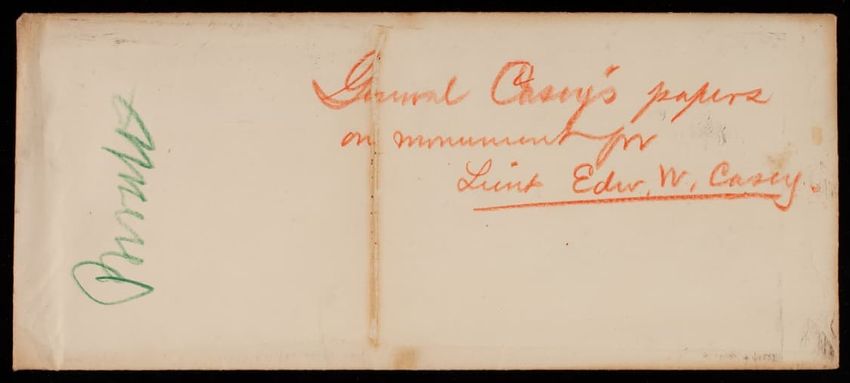 General Casey's papers
on monument for
Lieut Edw. W. Casey.